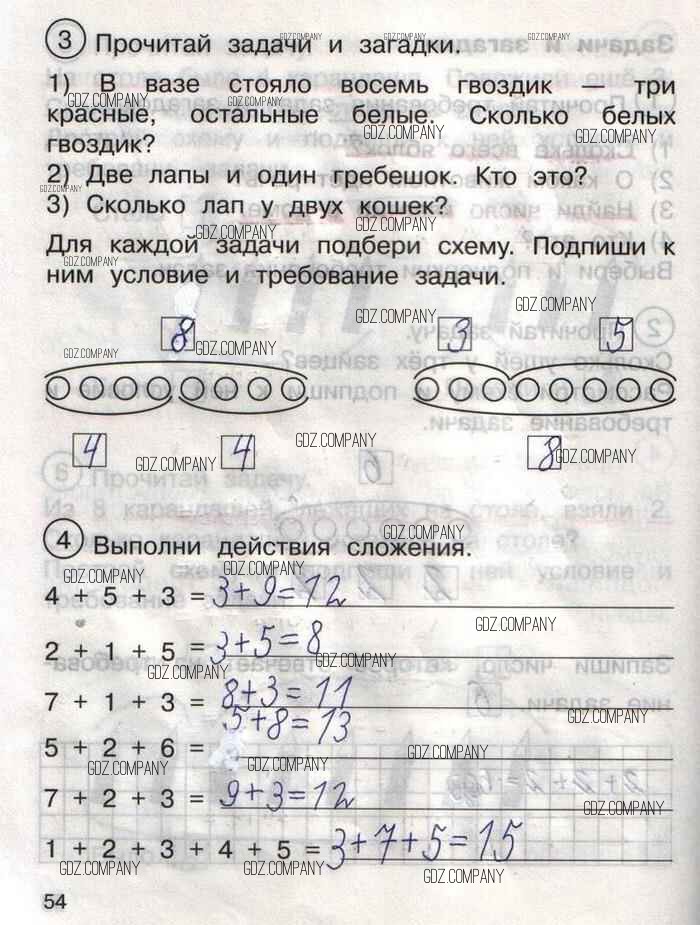 3 Прочитай задачи и загадки.
1) В вазе стояло восемь гвоздик — три
красные, остальные белые. Сколько белых
гвоздик?
2) Две лапы и один гребешок. Кто это?
3) Сколько лап у двух кошек?
Для каждой задачи подбери схему. Подпиши к
ним условие и требование задачи.
8 3 5
4 4 8
4 Выполни действия сложения.
4 + 5 + 3 = 3+9=12
2 + 1 + 5 = 3+5=8
7 + 1 + 3 = 8+3=11
5 + 2 + 6 = 5+8=13
7 + 2 + 3 = 9+3=12
1 + 2 + 3 + 4 + 5 = 3+7+5=15
54
GDZ.COMPANY